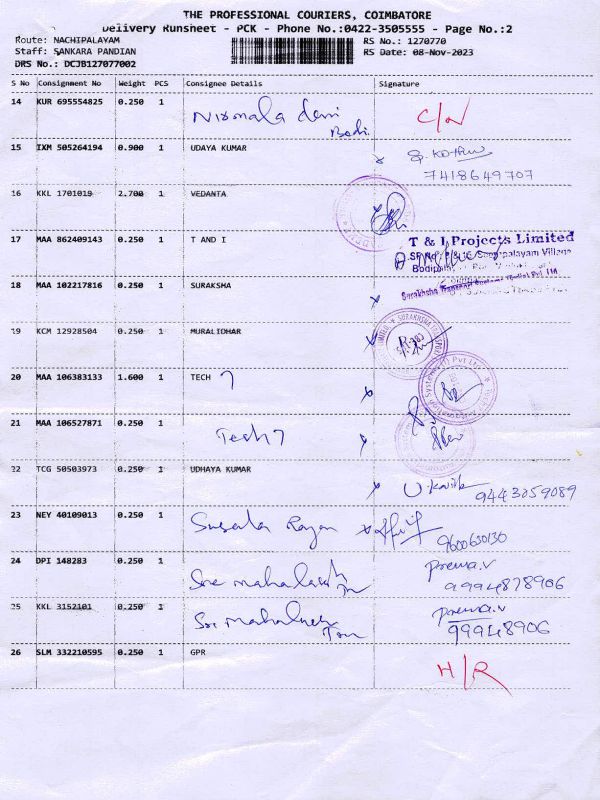 THE PROFESSIONAL COURIERS, COIMBATORE
Delivery Runsheet - PCK - Phone No.:0422-3505555 - Page No.:2
Route: NACHIPALAYAM
RS No.: 1270770
Staff: SANKARA PANDIAN
RS Date: 08-Nov-2023
DRS No.: DCJB127077002
S No Consignment No Weight PCS Consignee Details Signature
14 KUR 695554825 0.250 1 Nirmala devi C/N
15 IXM 505264194 0.900 1 UDAYA KUMAR
7418649707
16 KKL 1701019 2.700 1 VEDANTA
17 MAA 862409143 0.250 1 T AND I T & I Projects Limited
18 MAA 102217816 0.250 1 SURAKSHA
19 KCM 12928504 0.250 1 MURALIDHAR
20 MAA 106383133 1.600 1 TECH 7
21 MAA 106527871 0.250 1 Tech 7
22 TCG 50503973 0.250 1 UDHAYA KUMAR
9443059089
23 NEY 40109013 0.250 1
9600630130
24 DPI 148283 0.250 1 Prema.v
9994878906
25 KKL 3152101 0.250 1 Prema.v
99948906
26 SLM 332210595 0.250 1 GPR H/R